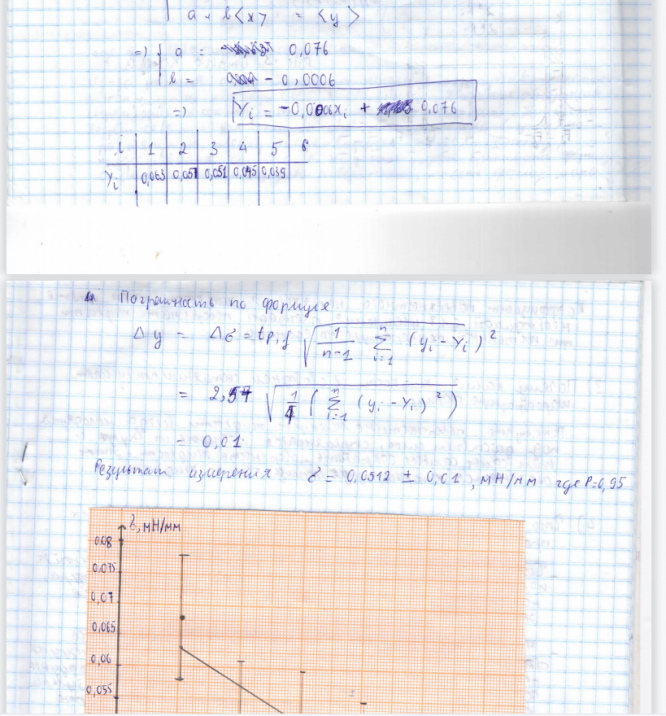 a + b<x> = <y>
=> a = 0,076
b = - 0,0006
=> Yi = -0,0006xi + 0,076
i 1 2 3 4 5 6
Yi 0,063 0,057 0,051 0,045 0,039
Погрешность по формуле
Δy = Δσ = tp,f √ 1/(n-1) Σ (yi - Yi)²
= 2,57 √ 1/4 ( Σ (yi - Yi)² )
= 0,01
Результат измерения σ = 0,0512 ± 0,01, мН/мм где P=0,95
мН/мм
0,08
0,075
0,07
0,065
0,06
0,055